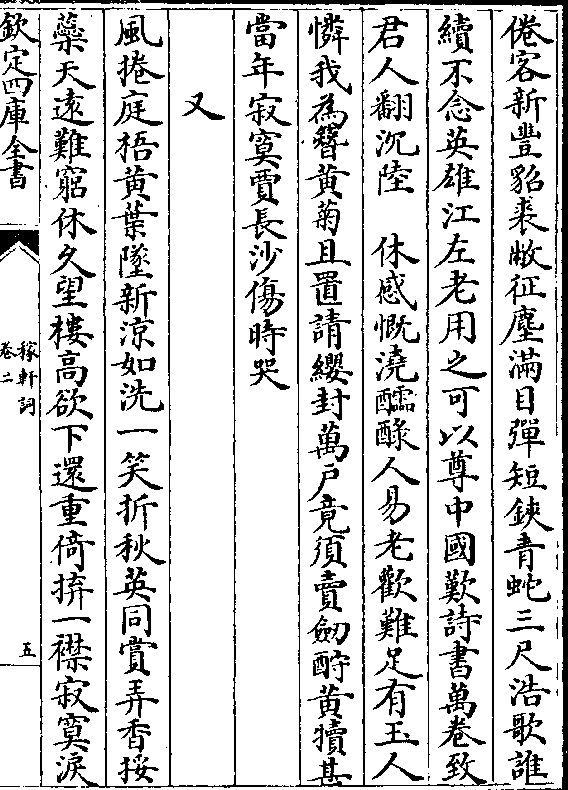 倦客新豐貂裘敝征塵滿目彈短鋏青蛇三尺浩歌誰
續不念英雄江左老用之可以尊中國歎詩書萬卷致
君人翻沉陸　休感慨澆醽醁人易老歡難足有玉人
憐我為簪黃菊且置請纓封萬戶竟須賣劒酧黃犢甚
當年寂寞賈長沙傷時哭
又
風捲庭梧黃葉墜新涼如洗一笑折秋英同賞弄香挼
蘂天逺難窮休久望樓高欲下還重倚拚一襟寂寞淚
欽定四庫全書
稼軒詞
卷二
五